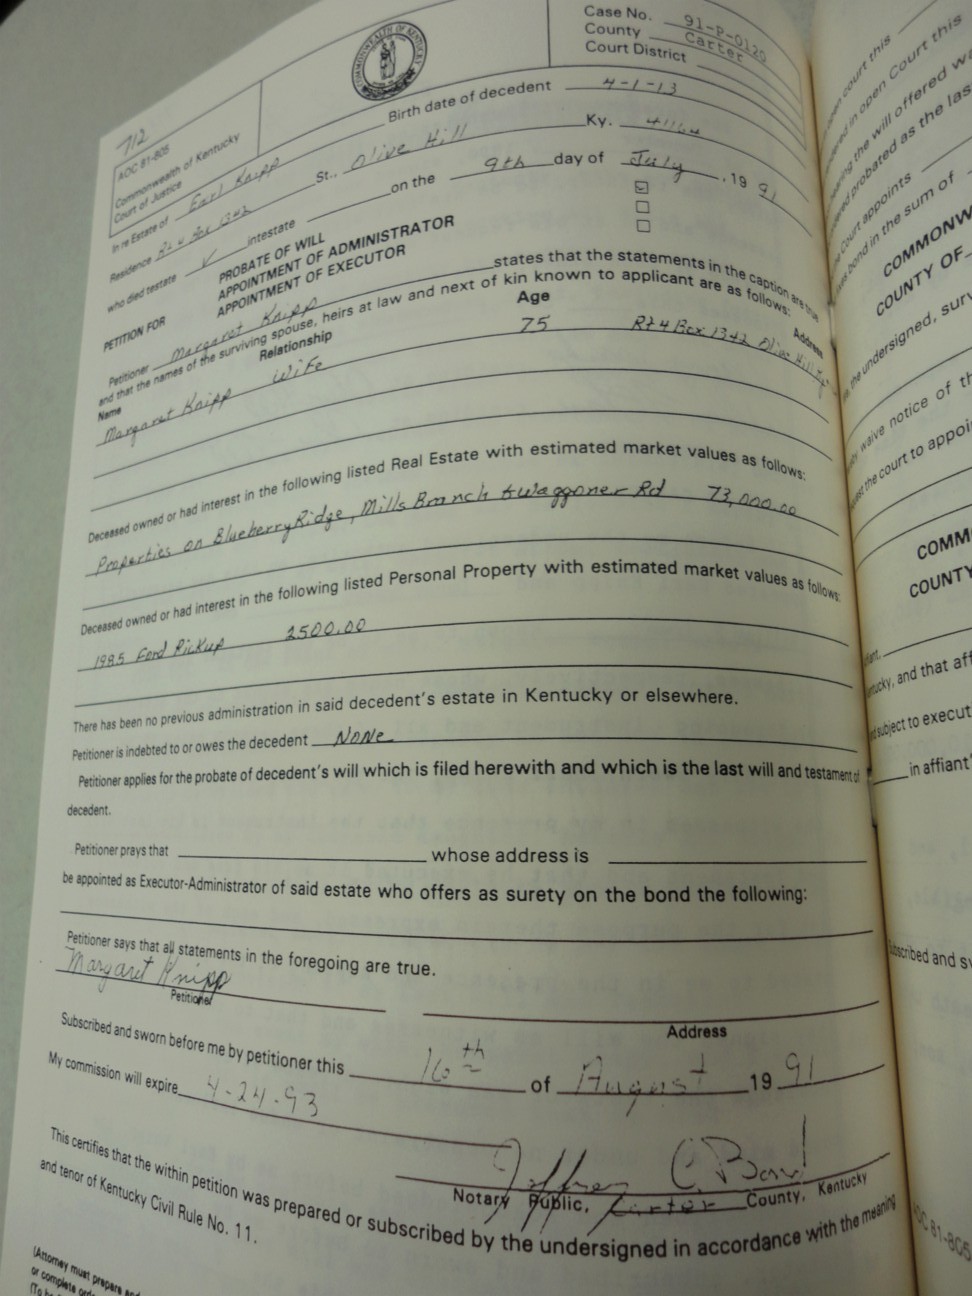 712
AOC 81-805
Commonwealth of Kentucky
Court of Justice
COMMONWEALTH OF KENTUCKY
Case No. 91-P-0120
County Carter
Court District
In re Estate of Earl Knipp Birth date of decedent 4-1-13
Residence Rt 4 Box 1342 St., Olive Hill Ky. 41164
who died testate ✓ intestate on the 9th day of July, 19 91
PETITION FOR PROBATE OF WILL
APPOINTMENT OF ADMINISTRATOR
APPOINTMENT OF EXECUTOR
Petitioner Margaret Knipp states that the statements in the caption are true
and that the names of the surviving spouse, heirs at law and next of kin known to applicant are as follows:
Name Relationship Age Address
Margaret Knipp Wife 75 Rt 4 Box 1342 Olive Hill Ky
Deceased owned or had interest in the following listed Real Estate with estimated market values as follows:
Properties on Blueberry Ridge, Mills Branch & Waggoner Rd 73,000.00
Deceased owned or had interest in the following listed Personal Property with estimated market values as follows:
1985 Ford Pickup 2500.00
There has been no previous administration in said decedent's estate in Kentucky or elsewhere.
Petitioner is indebted to or owes the decedent NONE
Petitioner applies for the probate of decedent's will which is filed herewith and which is the last will and testament of
decedent.
Petitioner prays that whose address is
be appointed as Executor-Administrator of said estate who offers as surety on the bond the following:
Petitioner says that all statements in the foregoing are true.
Margaret Knipp
Petitioner Address
Subscribed and sworn before me by petitioner this 16th of August 19 91
My commission will expire 4-24-93
Jeffrey C. 
Notary Public, Carter County, Kentucky
This certifies that the within petition was prepared or subscribed by the undersigned in accordance with the meaning
and tenor of Kentucky Civil Rule No. 11.
(Attorney must prepare and
or complete
(To be
open court this
in open Court this
the will offered
probated as the las
Court appoints
bond in the sum of
COMMONW
COUNTY OF
the undersigned, surv
waive notice of th
the court to appoi
COMM
COUNTY
affiant,
and that aff
subject to execut
in affiant'
Subscribed and sw
AOC 81-805